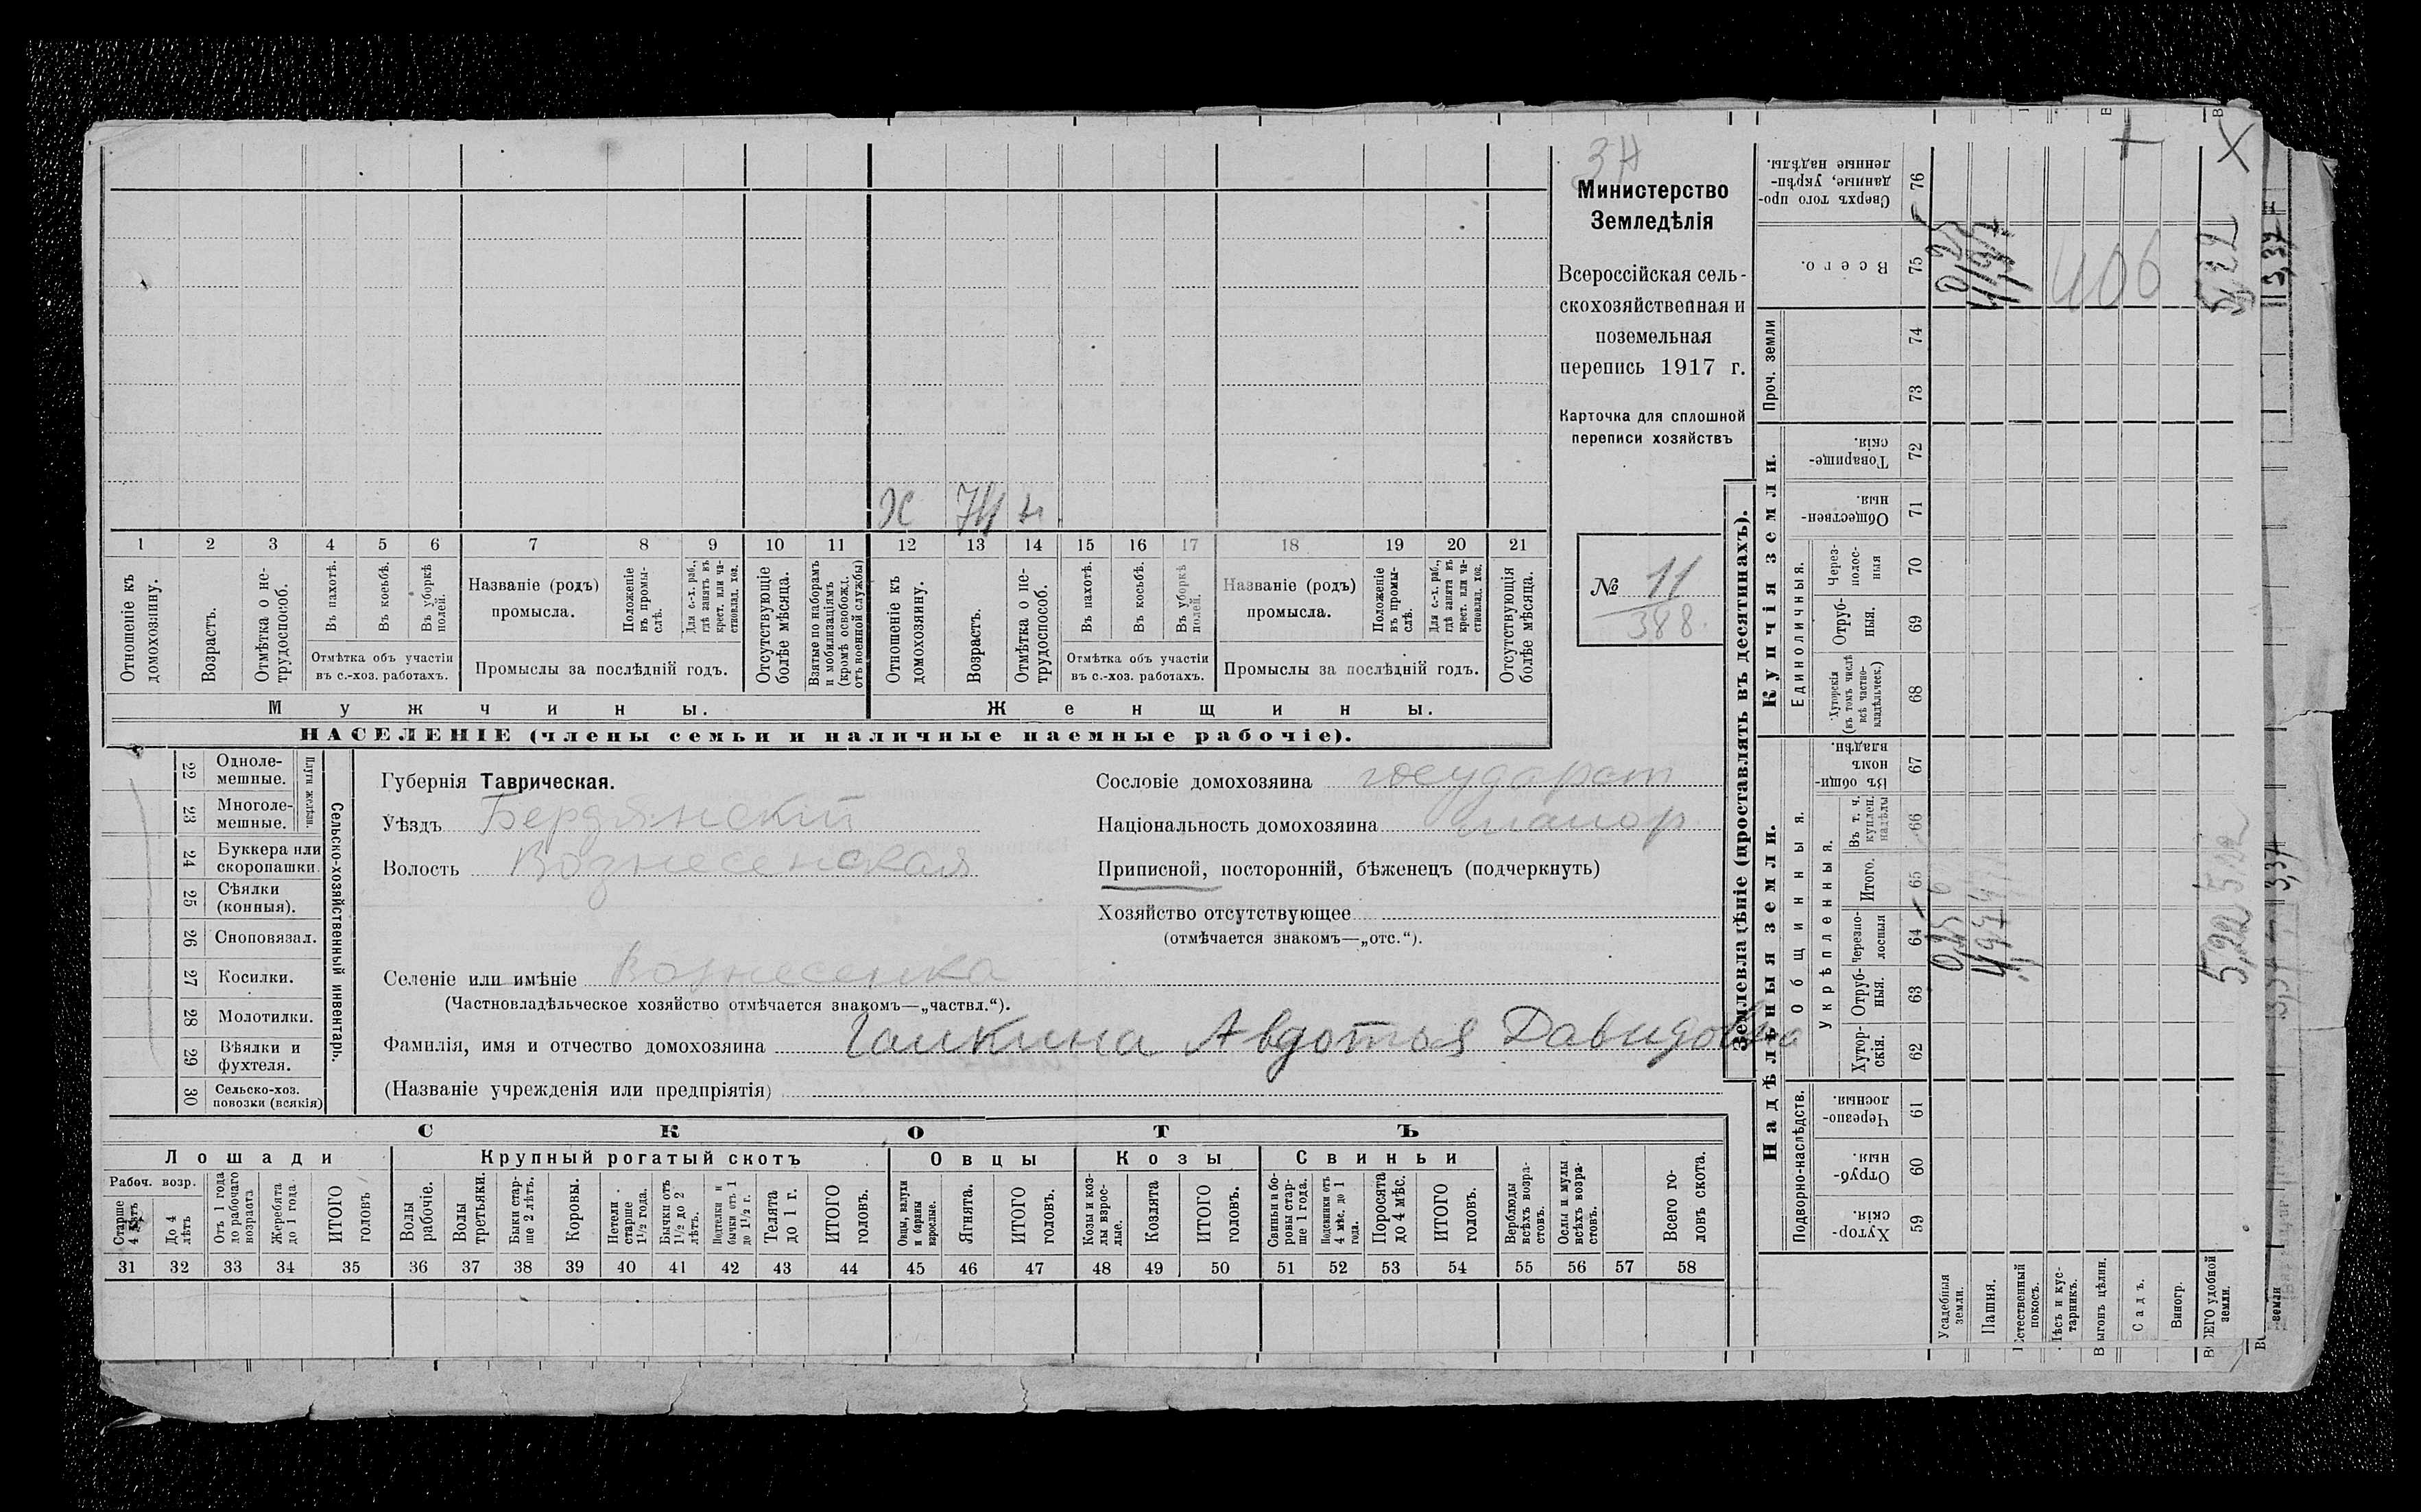 3Н
Министерство
Земледѣлія
Всероссійская сель-
скохозяйственная и
поземельная
перепись 1917 г.
Карточка для сплошной
переписи хозяйствъ
№ 11
388.
Х 74 н
1 2 3 4 5 6 7 8 9 10 11 12 13 14 15 16 17 18 19 20 21
Отношеніе къ
домохозяину.
Возрастъ.
Отмѣтка о не-
трудоспособ.
Въ пахотѣ.
Въ косьбѣ.
Въ уборкѣ
полей.
Отмѣтка объ участіи
въ с.-хоз. работахъ.
Названіе (родъ)
промысла.
Положеніе
въ промы-
слѣ.
Для с.-х. раб.,
гдѣ занятъ въ
крест. или ча-
стновлад. хоз.
Промыслы за послѣдній годъ.
Отсутствующіе
болѣе мѣсяца.
Взятые по наборамъ
и мобилизаціямъ
(кромѣ освобожд.
отъ военной службы)
Отношеніе къ
домохозяину.
Возрастъ.
Отмѣтка о не-
трудоспособ.
Въ пахотѣ.
Въ косьбѣ.
Въ уборкѣ
полей.
Отмѣтка объ участіи
въ с.-хоз. работахъ.
Названіе (родъ)
промысла.
Положеніе
въ промы-
слѣ.
Для с.-х. раб.,
гдѣ занята въ
крест. или ча-
стновлад. хоз.
Промыслы за послѣдній годъ.
Отсутствующія
болѣе мѣсяца.
Мужчины. Женщины.
НАСЕЛЕНІЕ (члены семьи и наличные наемные рабочіе).
22 Одноле-
мешные.
23 Многоле-
мешные.
Плуги желѣзн.
24 Буккера или
скоропашки.
25 Сѣялки
(конныя).
26 Сноповязал.
27 Косилки.
28 Молотилки.
29 Вѣялки и
фухтеля.
30 Сельско-хоз.
повозки (всякія)
Сельско-хозяйственный инвентарь.
Губернія Таврическая.
Уѣздъ Бердянскій
Волость Вознесенская
Селеніе или имѣніе Вознесенка
(Частновладѣльческое хозяйство отмѣчается знакомъ—„частвл.“).
Фамилія, имя и отчество домохозяина Галкина Авдотья Давидовна
(Названіе учрежденія или предпріятія)
Сословіе домохозяина государст
Національность домохозяина малор
Приписной, посторонній, бѣженецъ (подчеркнуть)
Хозяйство отсутствующее
(отмѣчается знакомъ—„отс.“).
СКОТЪ
Лошади Крупный рогатый скотъ Овцы Козы Свиньи
Рабоч. возр.
Старше
4 лѣтъ
До 4
лѣтъ
Отъ 1 года
до рабочаго
возраста
Жеребята
до 1 года
ИТОГО
головъ
Волы
рабочіе.
Волы
третьяки.
Быки стар-
ше 2 лѣтъ.
Коровы.
Нетели
старше
1½ года.
Бычки отъ
1½ до 2
лѣтъ.
Подтелки и
бычки отъ 1
до 1½ г.
Телята
до 1 г.
ИТОГО
головъ.
Овцы, валухи
и бараны
взрослые.
Ягнята.
ИТОГО
головъ.
Козы и коз-
лы взрос-
лые.
Козлята
ИТОГО
головъ.
Свиньи и бо-
ровы стар-
ше 1 года.
Подсвинки отъ
4 мѣс. до 1
года.
Поросята
до 4 мѣс.
ИТОГО
головъ.
Верблюды
всѣхъ возра-
стовъ.
Ослы и мулы
всѣхъ возра-
стовъ.
Всего го-
ловъ скота.
31 32 33 34 35 36 37 38 39 40 41 42 43 44 45 46 47 48 49 50 51 52 53 54 55 56 57 58
Землевладѣніе (проставлять въ десятинахъ).
Надѣльныя земли. Купчія земли. Проч. земли
Подворно-наслѣдств.
Общинныя.
Укрѣпленныя.
Единоличныя.
Хутор-
скія. 59
Отруб-
ныя. 60
Черезпо-
лосныя. 61
Хутор-
скія. 62
Отруб-
ныя. 63
Черезпо-
лосныя 64
Итого. 65
Въ т. ч.
куплен.
надѣлы 66
Въ общин-
номъ
владѣн. 67
Хуторскія
(въ томъ числѣ
всѣ частно-
владѣльческ.) 68
Отруб-
ныя. 69
Через-
полос-
ныя 70
Обществен-
ныя. 71
Товарище-
скія. 72
73
74
Всего. 75
Сверхъ того про-
данные, укрѣп-
ленные надѣлы. 76
Усадебныя
земли.
0,25
Пашня.
4,97
Естественный
покосъ.
Лѣсъ и кус-
тарникъ.
Выгонъ цѣлин.
Садъ.
Виногр.
ВСЕГО удобной
земли.
5,22 5,22 5,22
406
земли
3,37